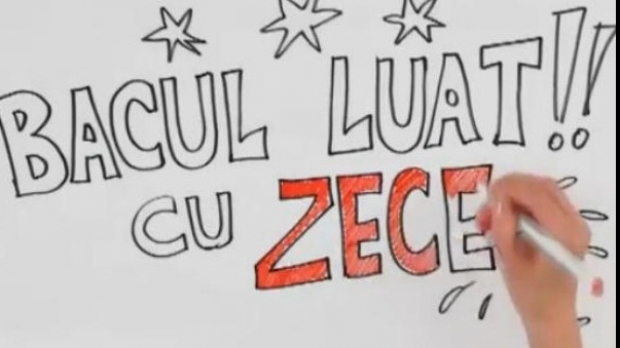 BACUL LUAT!!
CU ZECE